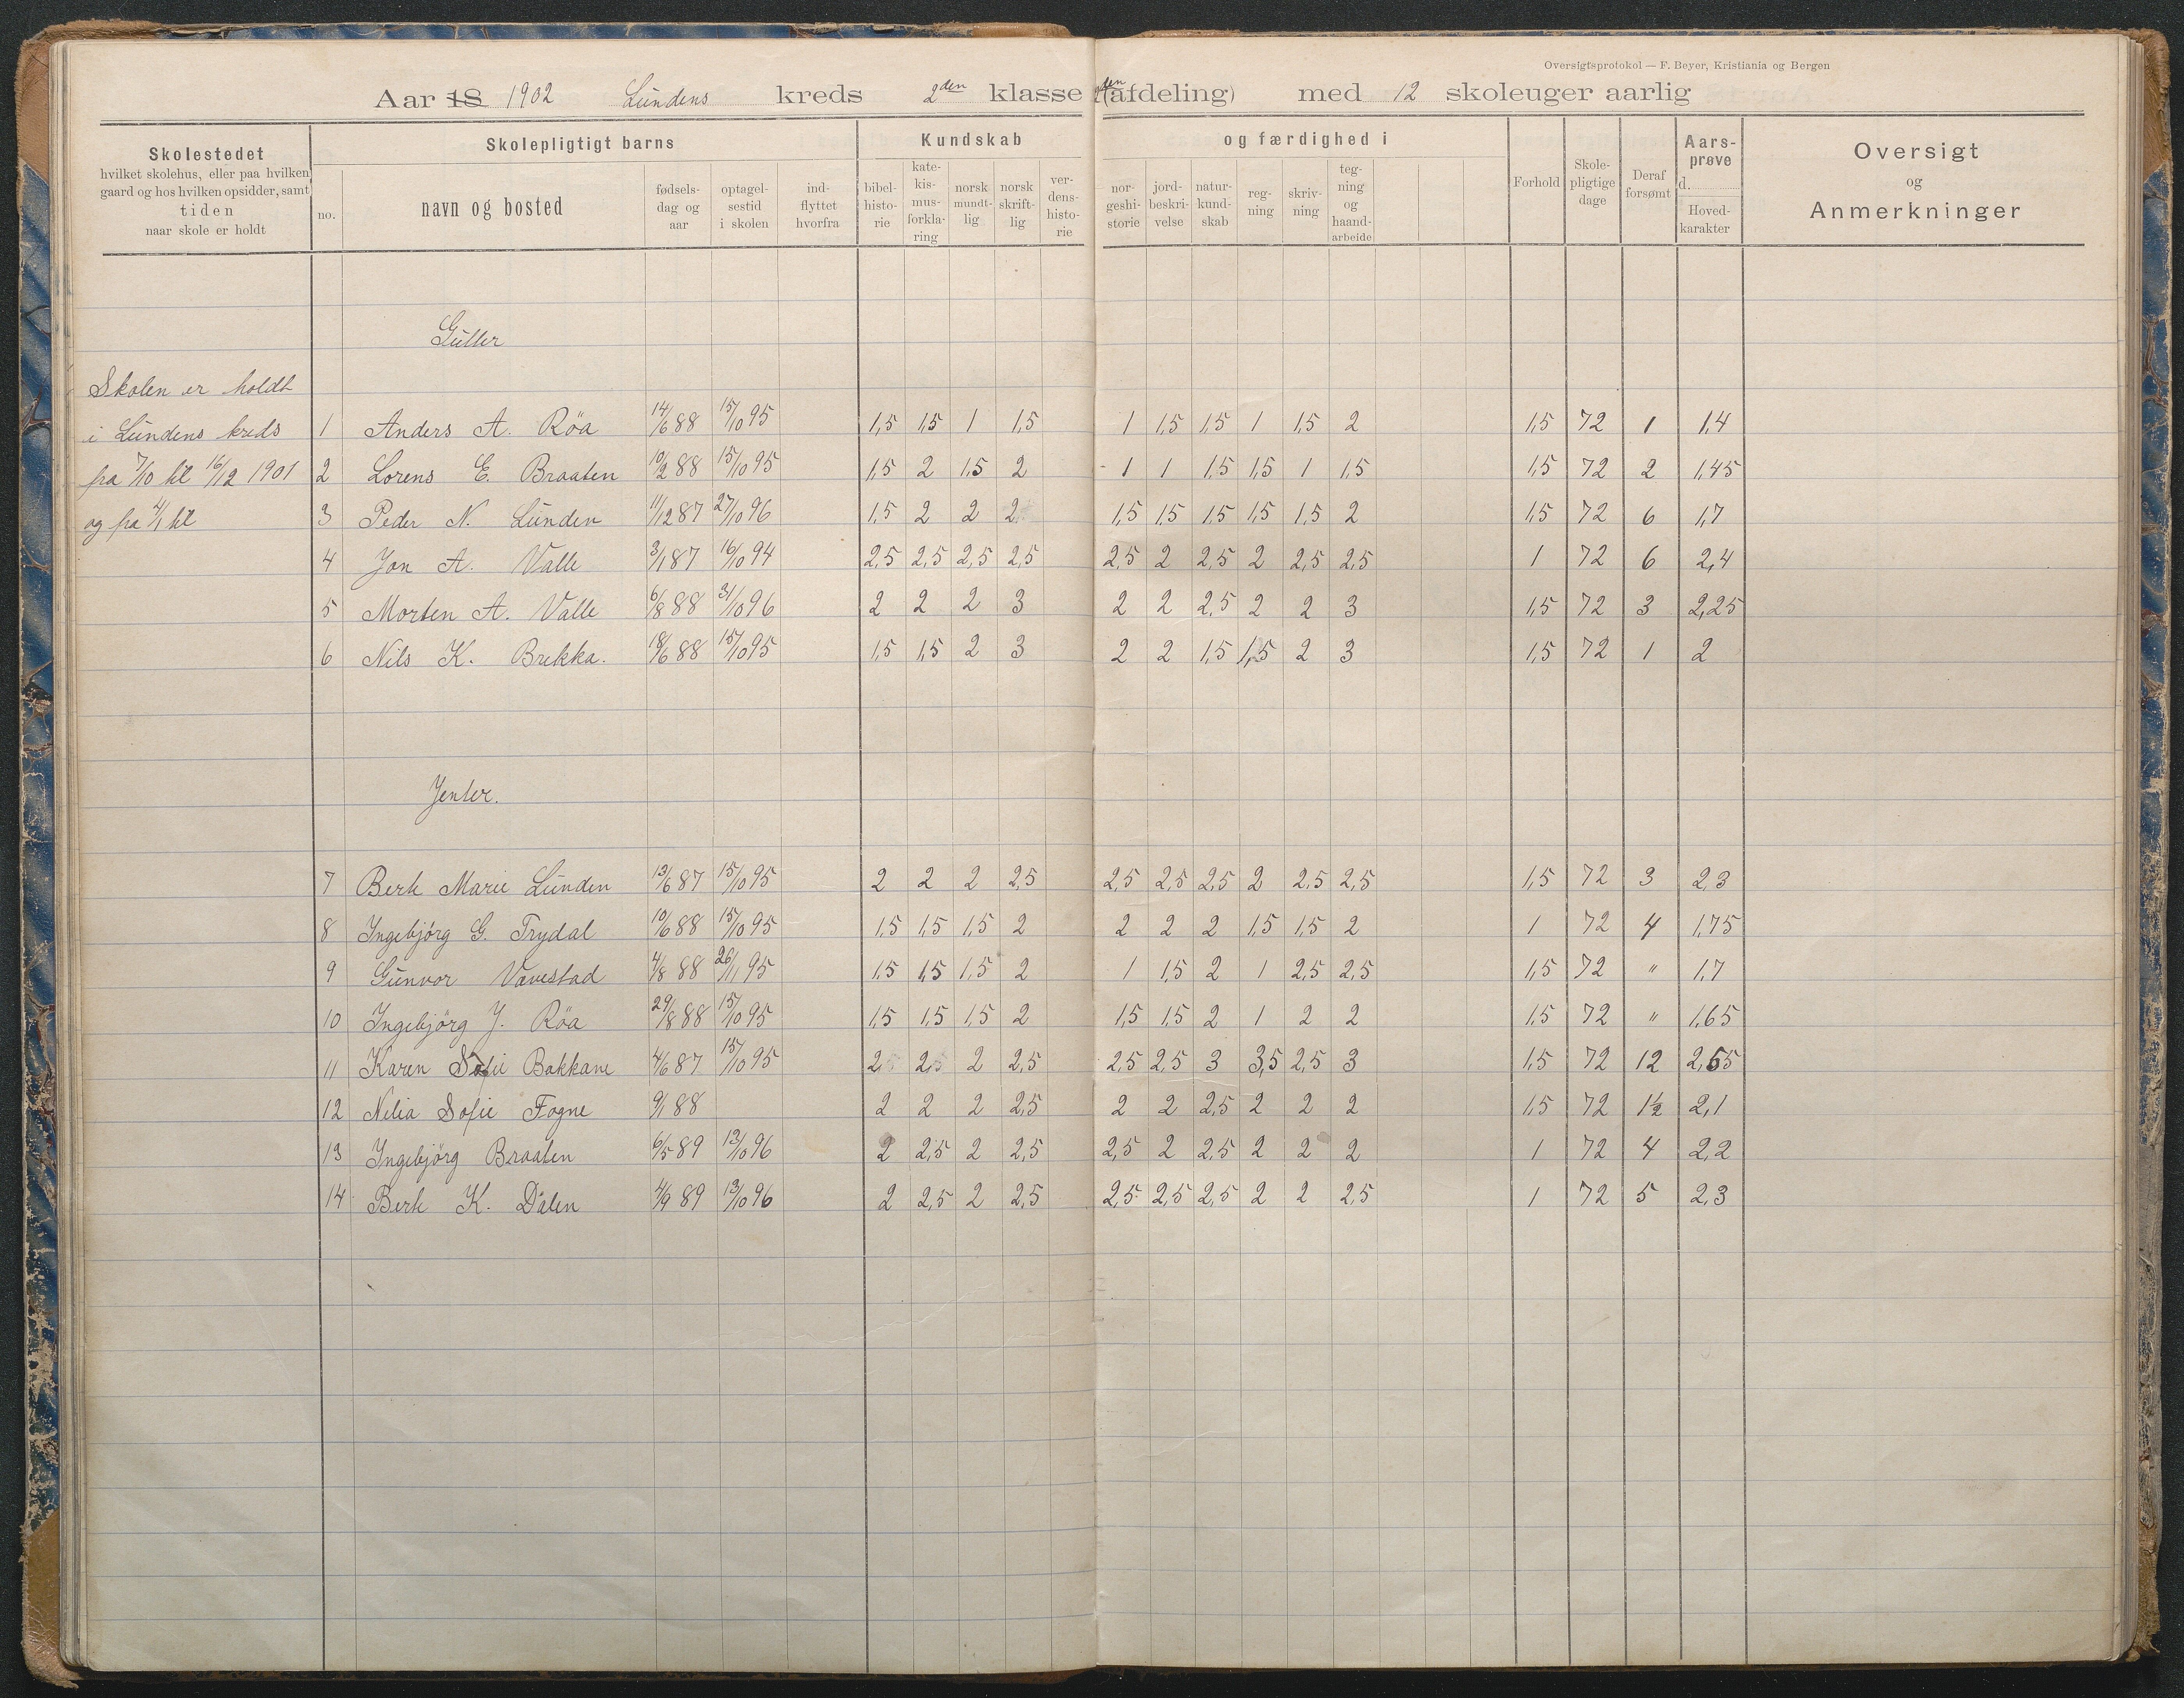 Oversigtsprotokol — F. Beyer, Kristiania og Bergen
Aar 18 1902 Lundens kreds 2den klasse (afdeling) med 12 skoleuger aarlig
Skolestedet hvilket skolehus, eller paa hvilken gaard og hos hvilken opsidder, samt tiden naar skole er holdt
Skolepligtigt barns
no.
navn og bosted
fødsels-dag og aar
optagel-sestid i skolen
ind-flyttet hvorfra
Kundskab og færdighed i
bibel-histo-rie
kate-kis-mus-forkla-ring
norsk mundt-lig
norsk skrift-lig
ver-dens-histo-rie
nor-geshi-storie
jord-beskri-velse
natur-kund-skab
reg-ning
skriv-ning
teg-ning og haand-arbeide
Forhold
Skole-pligtige dage
Deraf forsømt
Aars-prøve d.
Hoved-karakter
Oversigt og Anmerkninger
Gutter
Skolen er holdt
i Lundens kreds
fra 7/10 til 16/12 1901
og fra 4/1 til
1 Anders A. Röa 14/6 88 15/10 95 1,5 1,5 1 1,5 1 1,5 1,5 1 1,5 2 1,5 72 1 1,4
2 Lorens E. Braaten 10/2 88 15/10 95 1,5 2 1,5 2 1 1 1,5 1,5 1 1,5 1,5 72 2 1,45
3 Peder N. Lunden 11/12 87 27/10 96 1,5 2 2 2 1,5 1,5 1,5 1,5 1,5 2 1,5 72 6 1,7
4 Jon A. Valle 3/1 87 16/10 94 2,5 2,5 2,5 2,5 2,5 2 2,5 2 2,5 2,5 1 72 6 2,4
5 Morten A. Valle 6/8 88 31/10 96 2 2 2 3 2 2 2,5 2 2 3 1,5 72 3 2,25
6 Nils K. Brekka. 18/6 88 15/10 95 1,5 1,5 2 3 2 2 1,5 1,5 2 3 1,5 72 1 2
Jenter.
7 Berte Marie Lunden 13/6 87 15/10 95 2 2 2 2,5 2,5 2,5 2,5 2 2,5 2,5 1,5 72 3 2,3
8 Ingebjörg G. Trydal 10/6 88 15/10 95 1,5 1,5 1,5 2 2 2 2 1,5 1,5 2 1 72 4 1,75
9 Gunvor Vavestad 4/8 88 26/11 95 1,5 1,5 1,5 2 1 1,5 2 1 2,5 2,5 1,5 72 " 1,7
10 Ingebjörg J. Röa 29/8 88 15/10 95 1,5 1,5 1,5 2 1,5 1,5 2 1 2 2 1,5 72 " 1,65
11 Karen Sofie Bakkane 4/6 87 15/10 95 2,5 2,5 2 2,5 2,5 2,5 3 3,5 2,5 3 1,5 72 12 2,65
12 Nilia Sofie Fogne 9/1 88 2 2 2 2,5 2 2 2,5 2 2 2 1,5 72 1½ 2,1
13 Ingebjörg Braaten 6/5 89 13/10 96 2 2,5 2 2,5 2,5 2 2,5 2 2 2 1 72 4 2,2
14 Berte K. Dalen 4/9 89 13/10 96 2 2,5 2 2,5 2,5 2,5 2,5 2 2 2,5 1 72 5 2,3